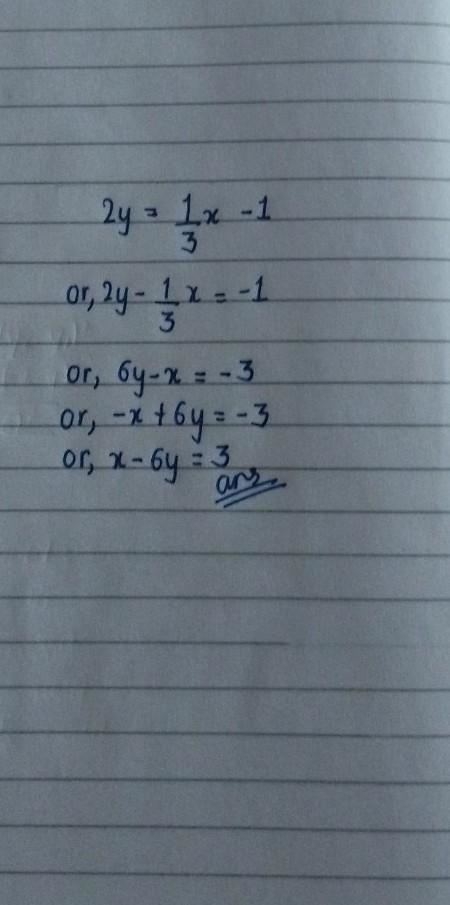 2y = 1/3 x - 1
or, 2y - 1/3 x = -1
or, 6y - x = -3
or, -x + 6y = -3
or, x - 6y = 3
ans.